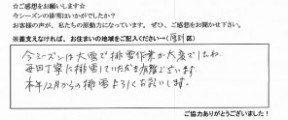 ☆ご感想をお願いします☆
今シーズンの排雪はいかがでしたか？
お客様の声が、私たちの原動力になっています。 ぜひ、ご感想をお聞かせ下さい。
※差支えなければ、お住まいの地域をご記入ください→（ 厚別 区）
今シーズンは大雪で排雪作業が大変でしたね。
毎回丁寧に排雪していただき有難うございます。
本年12月からの排雪よろしくお願いします。
ご協力ありがとうございました！